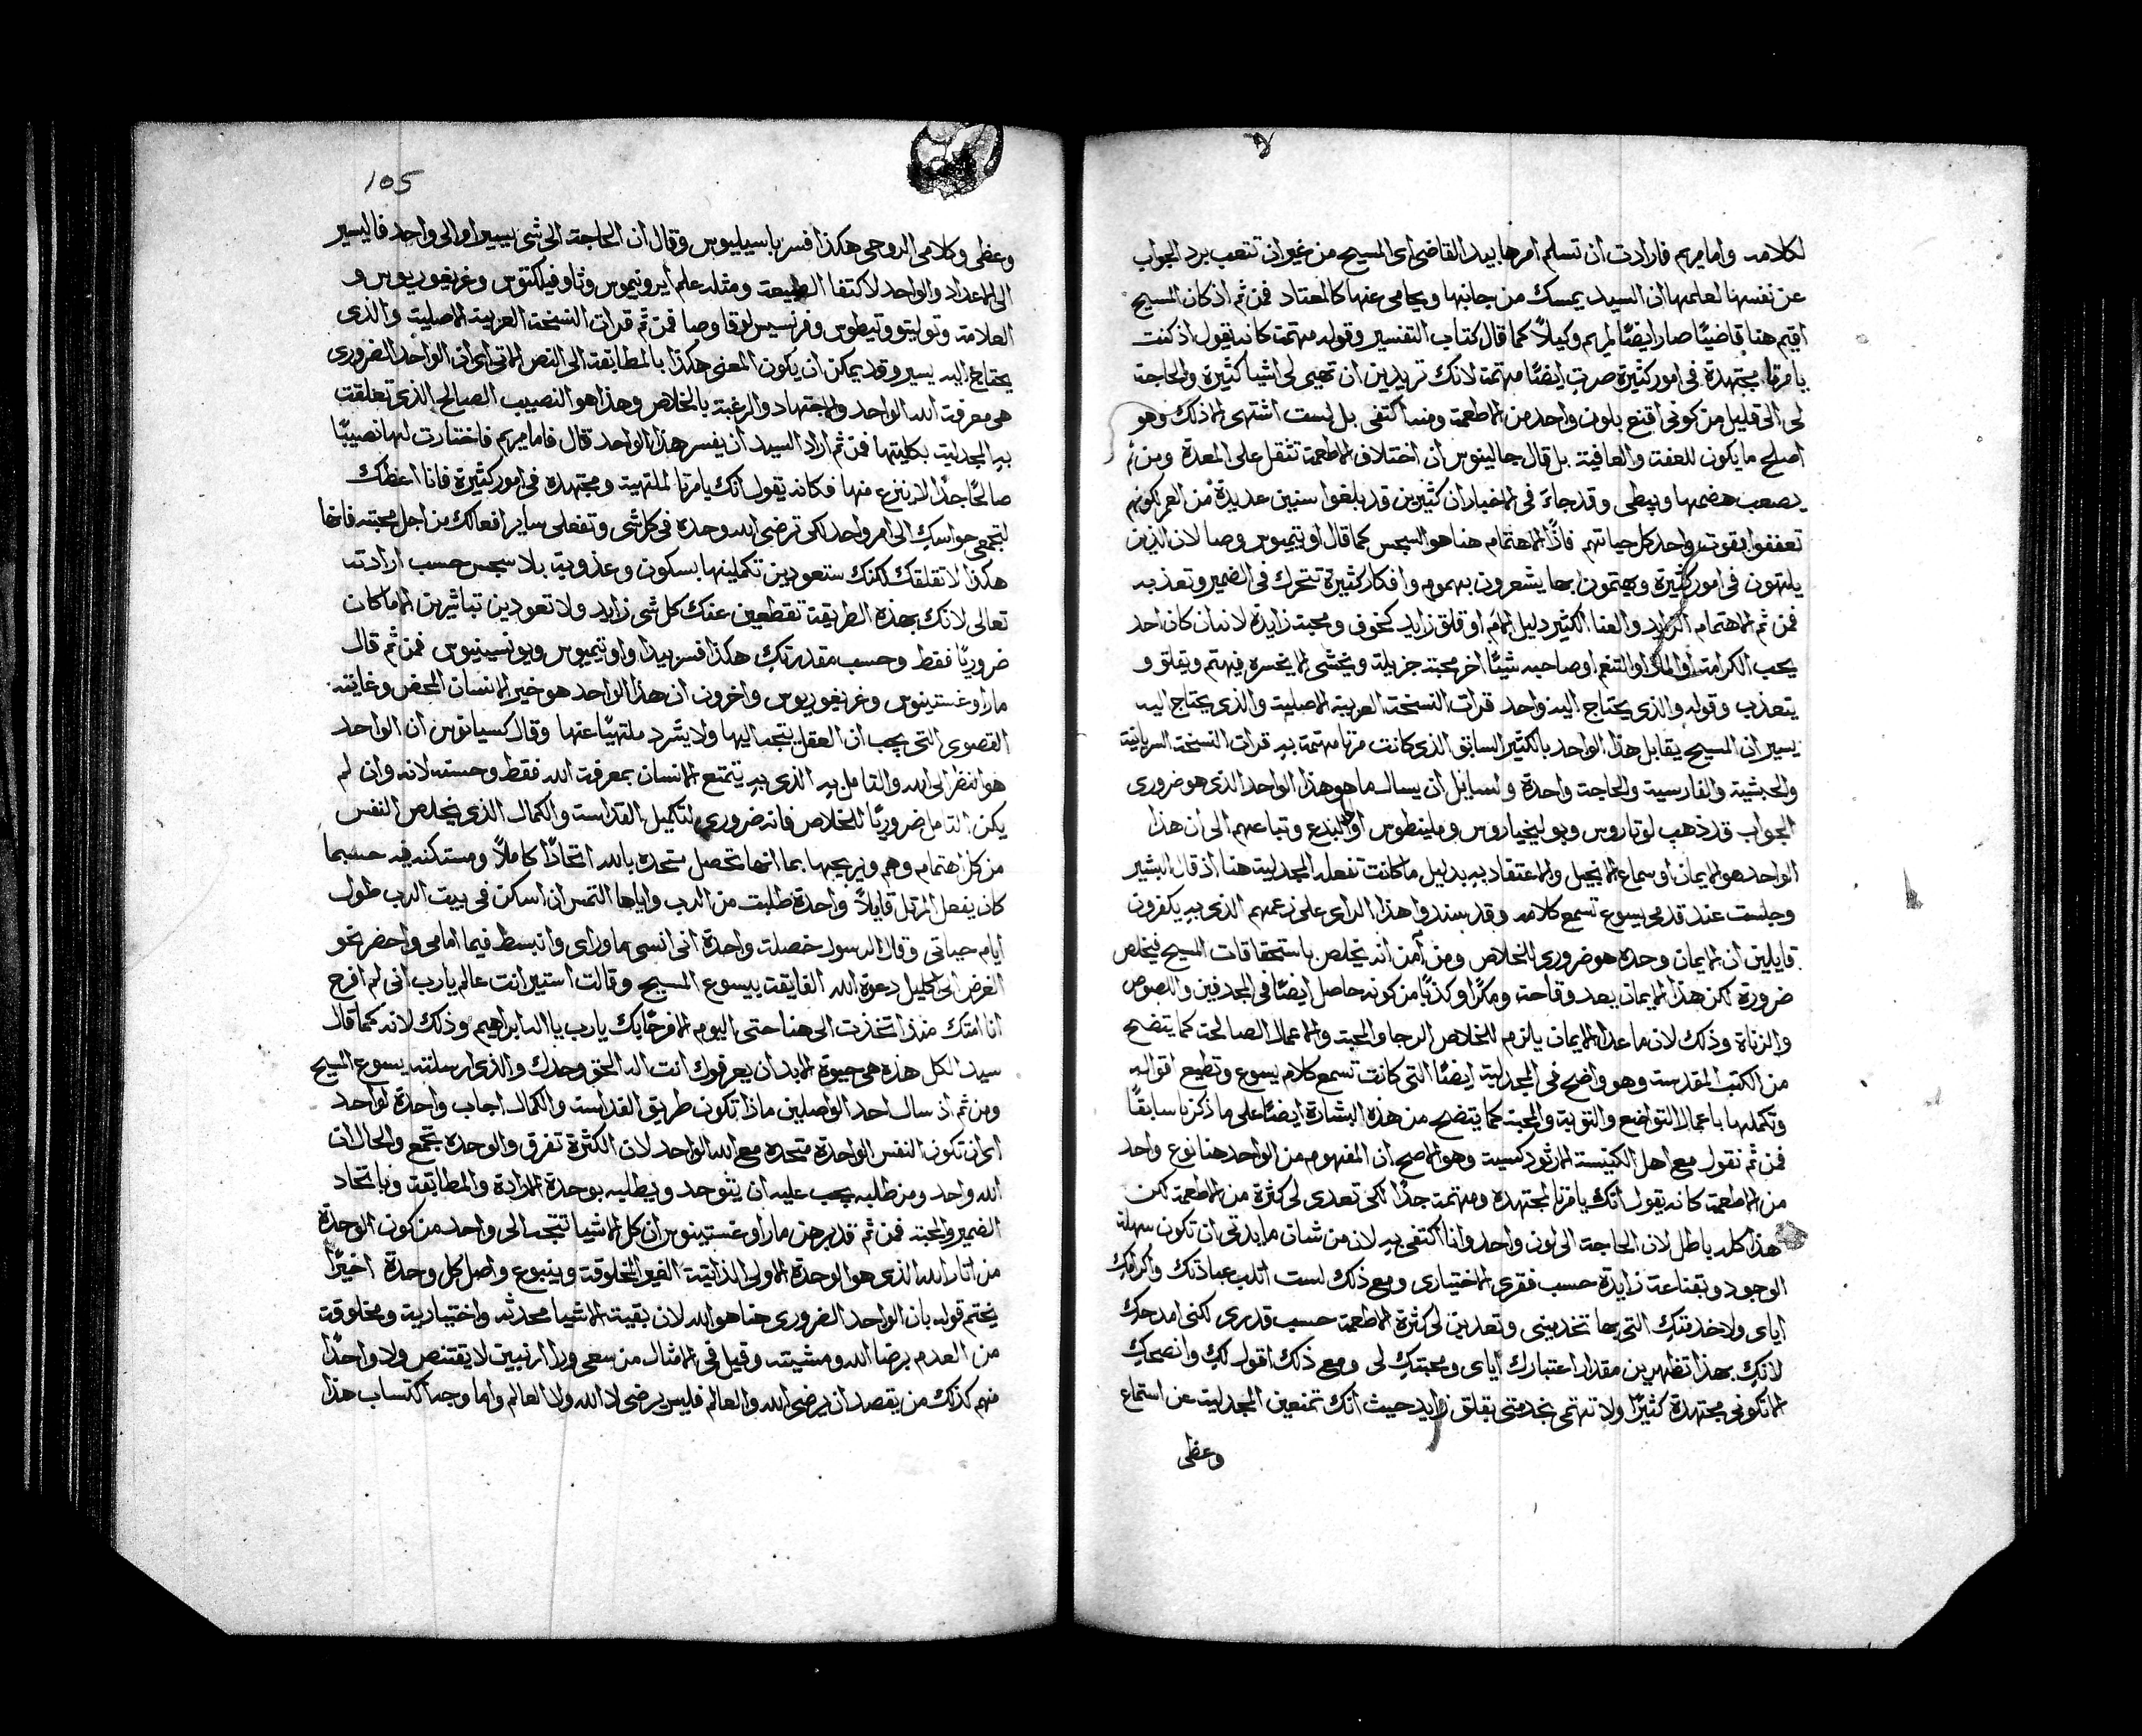 لكلامه واما مريم فارادت ان تسلم امرها بيد القاضى اى المسيح من غير ان تتعب برد الجواب
عن نفسها لعلمها ان السيد يمسك من جانبها ويحامى عنها كالمعتاد فمن ثم اذ كان المسيح
اقيم هنا قاضيًا صار ايضًا لمريم وكيلًا كما قال كتاب التفسير وقوله مهتمة كانه يقول اذ كنت
يا مرتا مجتهدة فى امور كثيرة صرتِ ايضًا مهتمة لانك تريدين ان تهيى لى اشيا كثيرة والحاجة
لى الى قليل من كونى اقنع بلون واحد من الاطعمة ومنه اكتفى بل لست اشتهى الا ذلك وهو
اصلح ما يكون للعفة والعافية بل قال جالينوس ان اختلاف الاطعمة تثقل على المعدة ومن ثم
يصعب هضمها ويبطى وقد جاء فى الاخبار ان كثيرين قد بلغوا سنين عديدة من العمر لكونهم
تعففوا بقوت واحد كل حياتهم فاذًا الاهتمام هنا هو السجس كما قال اوتيميوس وصا لان الذين
يلتهون فى امور كثيرة ويهتمون بها يشعرون بهموم وافكار كثيرة تتحرك فى الضمير وتعذبه
فمن ثم الاهتمام الزايد والعنا الكثير دليل الالم او قلق زايد كخوف ومحبة زايدة لانه ان كان احد
يحب الكرامة او المال او التنعم او صاحبه شيئًا اخر محبة جزيلة ويخشى لا يخسره فيهتم ويقلق و
يتعذب وقوله والذى يحتاج اليه واحد قرات النسخة العربية الاصلية والذى يحتاج اليه
يسير ان المسيح يقابل هذا الواحد بالكثير السابق الذى كانت مرتا مهتمة به قرات النسخة السريانية
والحبشية والفارسية والحاجة واحدة ولسايل ان يسال ما هو هذا الواحد الذى هو ضرورى
الجواب قد ذهب لوتاروس وبولينجياروس وملينطوس اولى البدع وتباعهم الى ان هذا
الواحد هو الايمان او سماع الانجيل والاعتقاد به بدليل ما كانت تفعله المجدلية هنا اذ قال البشير
وجلست عند قدمى يسوع تسمع كلامه وقد سندوا هذا الراى على زعمهم الذى به يكفرون
قايلين ان الايمان وحده هو ضرورى للخلاص ومن آمن انه يخلص باستحقاقات المسيح فيخلص
ضرورة لكن هذا الايمان يعد وقاحة ومكرًا وكذبًا من كونه حاصل ايضًا فى المجدفين واللصوص
والزناة وذلك لان ما عدا الايمان يلزم للخلاص الرجا والمحبة والاعمال الصالحة كما يتضح
من الكتب المقدسة وهو واضح فى المجدلية ايضًا التى كانت تسمع كلام يسوع وتطيع اقواله
وتكملها باعمال التواضع والتوبة والمحبة كما يتضح من هذه البشارة ايضًا على ما ذكرنا سابقًا
فمن ثم نقول مع اهل الكنيسة الارثودكسية وهو الاصح ان المفهوم من الواحد هنا نوع واحد
من الاطعمة كانه يقول انك يا مرتا مجتهدة ومهتمة جدًا لكى تعدى لى كثرة من الاطعمة لكن
هذا كله باطل لان الحاجة الى لون واحد وانا اكتفى به لان من شان مايدتى ان تكون سهلة
الوجود وبقناعة زايدة حسب فقرى الاختيارى ومع ذلك لست اثلب عبادتك واكرامك
اياى ولا خدمتكِ التى بها تخدمينى وتعدين لى كثرة الاطعمة حسب قدرى لكنى امدحكِ
لانكِ بهذا تظهرين مقدار اعتبارك اياى ومحبتكِ لى ومع ذلك اقول لكِ وانصحكِ
الا تكونى مجتهدة كثيرًا ولا تهتمى بخدمتى بقلق زايد حيث انك تمنعين المجدلية عن استماع
وعظى
105
وعظى وكلامى الروحى هكذا فسر باسيليوس وقال ان الحاجة الى شى يسير او الى واحد فاليسير
الى الاعداد والواحد لاكتفا الطبيعة ومثله علم ايرونيموس وثاوفيلكتوس وغريغوريوس و
العلامة وتوليتو وتيطوس وفرنسيس لوقا وصا فمن ثم قرات النسخة العربية الاصلية والذى
يحتاج اليه يسير وقد يمكن ان يكون المعنى هكذا بالمطابقة الى النص الاتى اى ان الواحد الضرورى
هى معرفة الله الواحد والاجتهاد والرغبة بالخلاص وهذا هو النصيب الصالح الذى تعلقت
به المجدلية بكليتها فمن ثم اراد السيد ان يفسر هذا الواحد قال فاما مريم فاختارت لها نصيبًا
صالحًا جدًا لا ينزع منها فكانه يقول انك يا مرتا لملتهية ومجتهده فى امور كثيرة فانا اعظك
لتجمعى حواسكِ الى امر واحد لكى ترضى الله وحده فى كل شى وتفعلى ساير افعالك من اجل محبته فانها
هكذا لا تقلقك لكنك ستعودين تكملينها بسكون وعذوبة بلا سجس حسب ارادته
تعالى لانك بهذه الطريقة تقطعين عنك كل شى زايد ولا تعودين تباشرين الا ما كان
ضروريًا فقط وحسب مقدرتكِ هكذا فسر بيدا واوتيميوس وديونيسيوس فمن ثم قال
مار اوغستينوس وغريغوريوس واخرون ان هذا الواحد هو خير الانسان المحض وغايته
القصوى التى يجب ان العقل يتجه اليها ولا يشرد ملتهيًا عنها وقال كسيانوس ان الواحد
هو النظر الى الله والتامل به الذى به يتمتع الانسان بمعرفة الله فقط وحسنه لانه وان لم
يكن التامل ضروريًا للخلاص فانه ضرورى لتكميل القداسة والكمال الذى يخلص النفس
من كل اهتمام وهم ويريحها بما انها تحصل متحده بالله اتحادًا كاملًا ومستكنه فيه حسبما
كان يفعل المرتل قايلًا واحدة طلبت من الرب واياها التمس ان اسكن فى بيت الرب طول
ايام حياتى وقال الرسول خصلة واحدة انى انسى ما وراى وانبسط فيما امامى واحضر نحو
الغرض الى اكليل دعوة الله الفايقة بيسوع المسيح وقالت استير انت عالم يارب انى لم افرح
انا امتك منذ اتخذت الى هنا حتى اليوم الا فرحًا بك يارب يا اله ابراهيم وذلك لانه كما قال
سيد الكل هذه هى حيوة الابد ان يعرفوك انت اله الحق وحدك والذى ارسلته يسوع المسيح
ومن ثم اذ سال احد الواصلين ماذا تكون طريق القداسة والكمال اجاب واحدة لواحد
اى ان تكون النفس الواحدة متحده مع الله الواحد لان الكثرة تفرق والوحده تجمع والحال ان
الله واحد ومن طلبه يجب عليه ان يتوحد ويطلبه بوحدة الارادة والمطابقة وباتحاد
الضمير والمحبة فمن ثم قد برهن مار اوغستينوس ان كل الاشيا تتجه الى واحد من كون الوحدة
من اثار الله الذى هو الوحدة الاولى الذاتية الغير المخلوقة وينبوع واصل كل وحدة اخيرًا
يختم قوله بان الواحد الضرورى هنا هو الله لان بقية الاشيا محدثه واختيارية ومخلوقة
من العدم برضا الله ومشيته وقيل فى الامثال من سعى ورا ارنبين لا يقتنص ولا واحدًا
منهم كذلك من يقصد ان يرضى الله والعالم فليس يرضى لا الله ولا العالم واما وجه اكتساب هذا